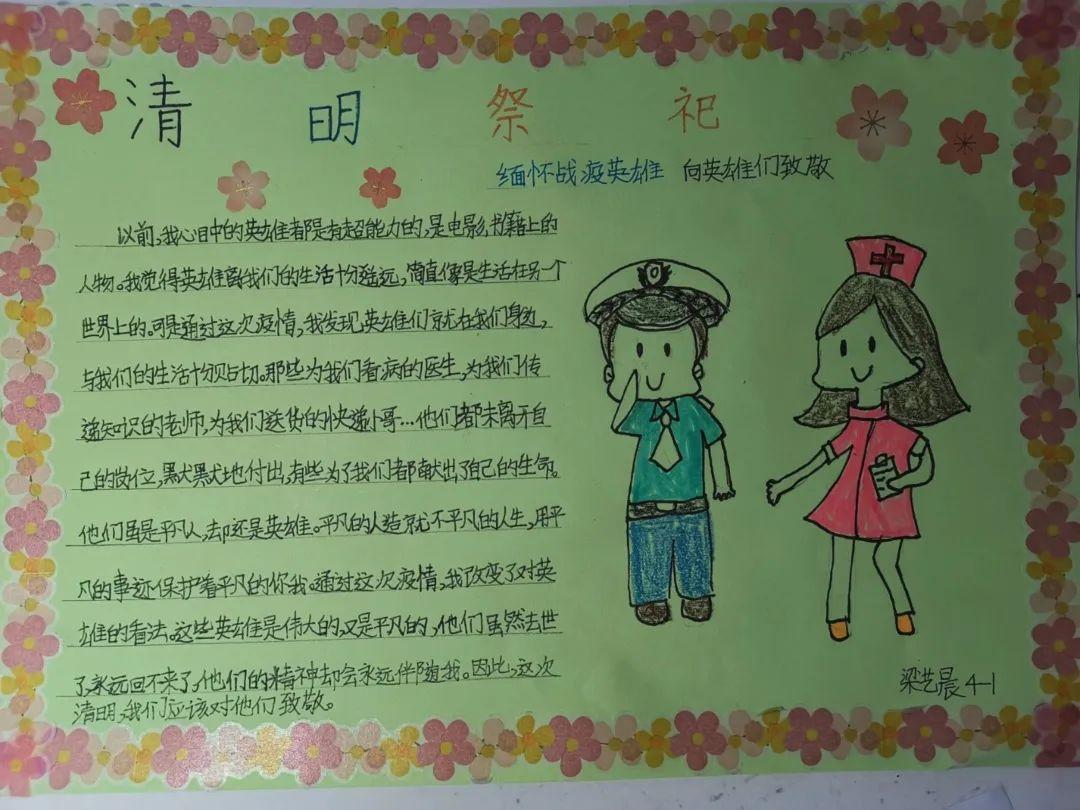 清明祭祀
缅怀战疫英雄 向英雄们致敬
以前,我心目中的英雄都是有超能力的,是电影,书籍上的
人物。我觉得英雄离我们的生活十分遥远,简直像是生活在另一个
世界上的。可是通过这次疫情,我发现英雄们就在我们身边,
与我们的生活十分贴切。那些为我们看病的医生,为我们传
递知识的老师,为我们送货的快递小哥…他们都未离开自
己的岗位,默默地付出,有些为了我们都献出了自己的生命。
他们虽是平凡人,却还是英雄。平凡的人造就不平凡的人生,用平
凡的事迹保护着平凡的你我。通过这次疫情,我改变了对英
雄的看法。这些英雄是伟大的,又是平凡的,他们虽然去世
了,永远回不来了,他们的精神却会永远伴随我。因此,这次
清明,我们应该对他们致敬。
梁艺晨4-1